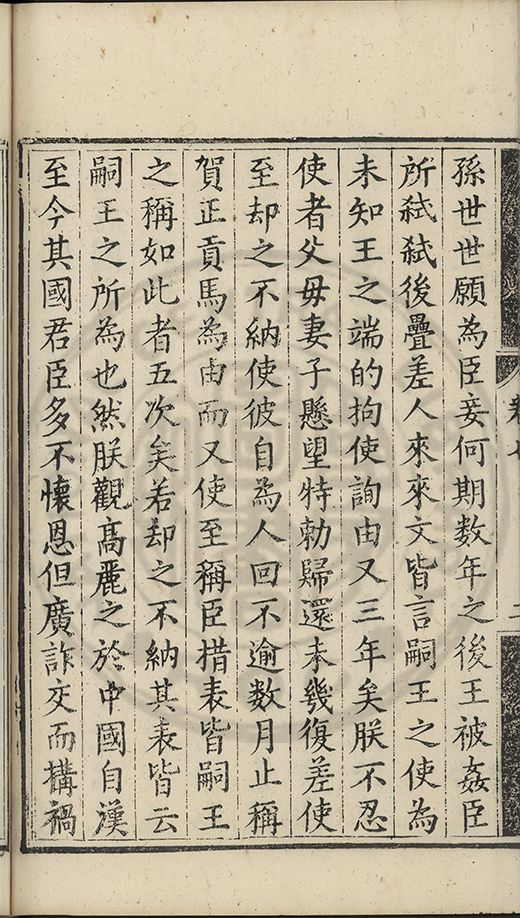 孫世世願為臣妾何期数年之後王被姦臣
所弑弑後疊差人來來文皆言嗣王之使為
未知王之端的拘使詢由又三年矣朕不忍
使者父毋妻子懸望特勅歸還未幾復差使
至却之不納使彼自為人回不逾数月止稱
賀正貢馬為由而又使至稱臣措表皆嗣王
之稱如此者五次矣若却之不納其表皆云
嗣王之所為也然朕觀髙麗之於中國自漢
至今其國君臣多不懷恩但廣詐交而搆禍